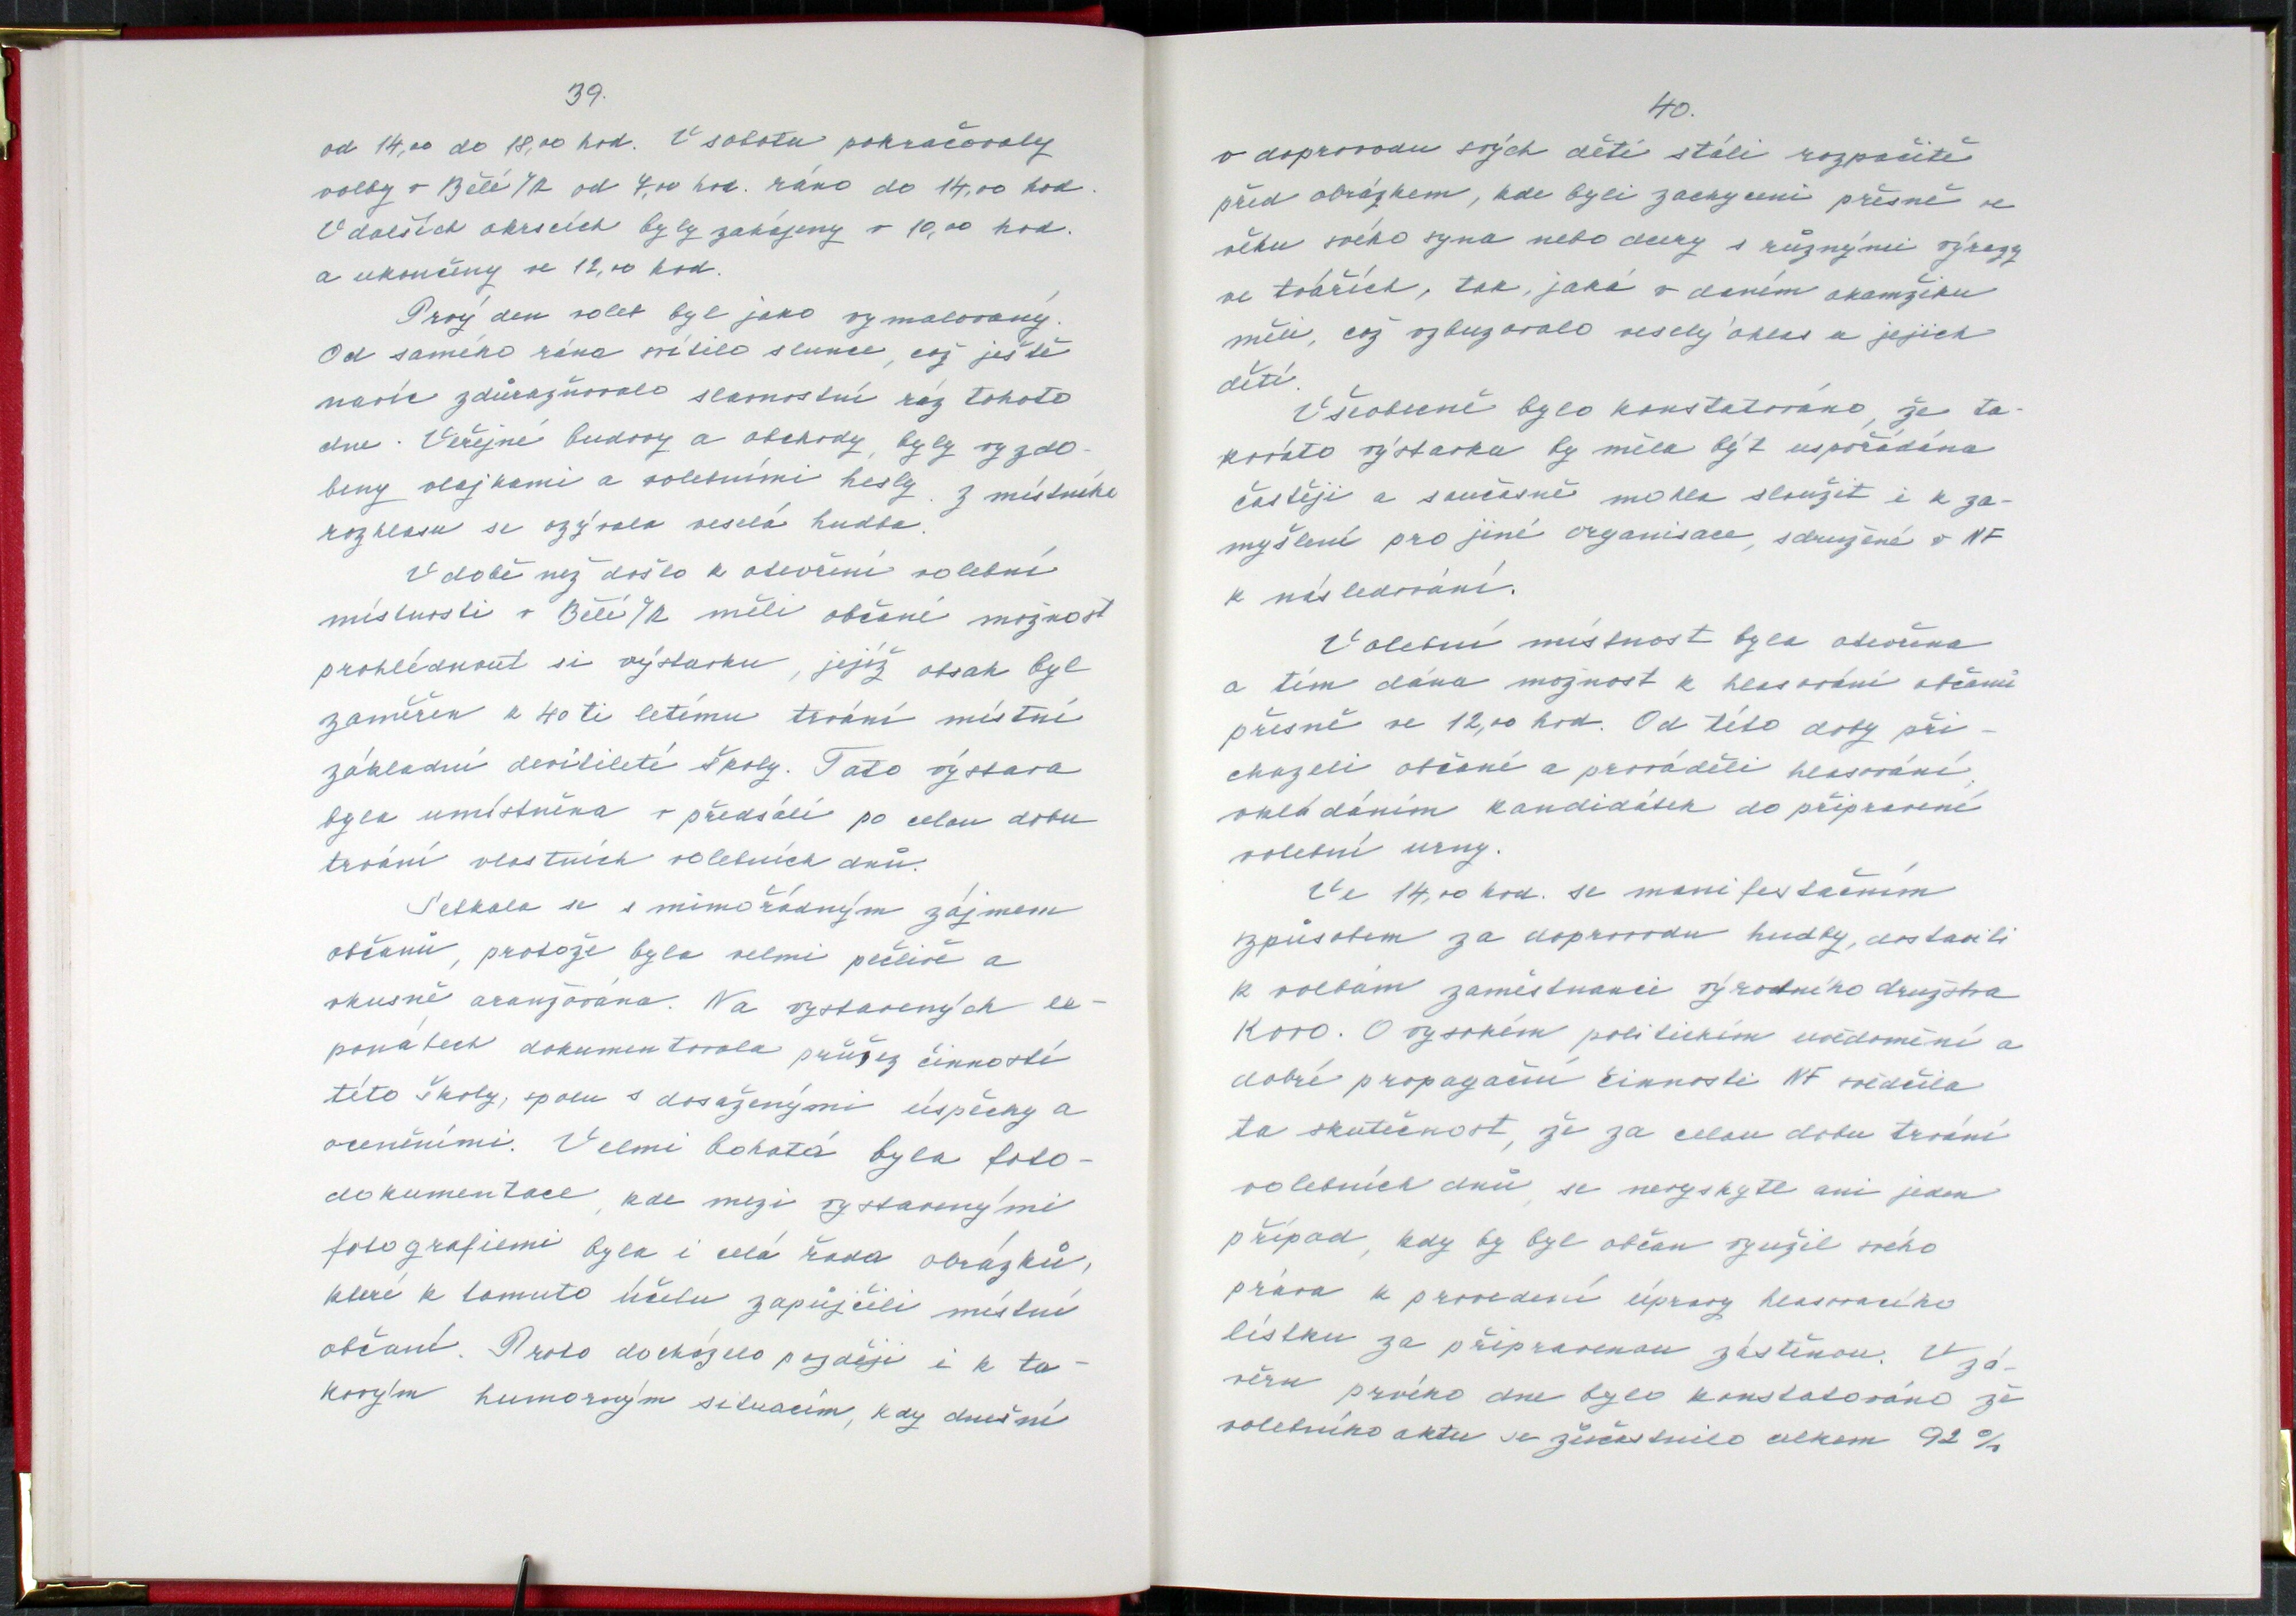 39.
od 14,00 do 18,00 hod. V sobotu pokračovaly
volby v Bělé/R od 7,00 hod. ráno do 14,00 hod.
V dalších okrscích byly zahájeny v 10,00 hod.
a ukončeny ve 12,00 hod.
Prvý den voleb byl jako vymalovaný.
Od samého rána svítilo slunce, což ještě
navíc zdůrazňovalo slavnostní ráz tohoto
dne. Veřejné budovy a obchody, byly vyzdo-
beny vlajkami a volebními hesly. Z místního
rozhlasu se ozývala veselá hudba.
V době než došlo k otevření volební
místnosti v Bělé/R měli občané možnost
prohlédnout si výstavku, jejíž obsah byl
zaměřen k 40 ti letému trvání místní
základní devítileté školy. Tato výstava
byla umístněna v předsálí po celou dobu
trvání vlastních volebních dnů.
Setkala se s mimořádným zájmem
občanů, protože byla velmi pečlivě a
vkusně aranžována. Na vystavených ex-
ponátech dokumentovala průřez činností
této školy, spolu s dosaženými úspěchy a
oceněními. Velmi bohatá byla foto-
dokumentace, kde mezi vystavenými
fotografiemi byla i celá řada obrázků,
které k tomuto účelu zapůjčili místní
občané. Proto docházelo později i k ta-
kovým humorným situacím, kdy dnešní
40.
v doprovodu svých dětí stáli rozpačitě
před obrázkem, kde byli zachyceni přesně ve
věku svého syna nebo dcery s různými výrazy
ve tvářích, tak, jaké v daném okamžiku
měli, což vzbuzovalo veselý ohlas u jejich
dětí.
Všeobecně bylo konstatováno, že ta-
kováto výstavka by měla být uspořádána
častěji a současně mohla sloužit i k za-
myšlení pro jiné organisace, sdružené v NF
k následování.
Volební místnost byla otevřena
a tím dána možnost k hlasování občanů
přesně ve 12,00 hod. Od této doby při-
cházeli občané a prováděli hlasování,
vkládáním kandidátek do připravené
volební urny.
Ve 14,00 hod. se manifestačním
způsobem za doprovodu hudby, dostavili
k volbám zaměstnanci výrobního družstva
Kovo. O vysokém politickém uvědomění a
dobré propagační činnosti NF svědčila
ta skutečnost, že za celou dobu trvání
volebních dnů, se nevyskytl ani jeden
případ, kdy by byl občan využil svého
práva k provedení úpravy hlasovacího
lístku za připravenou zástěnou. V zá-
věru prvého dne bylo konstatováno že
volebního aktu se zúčastnilo celkem 92 %